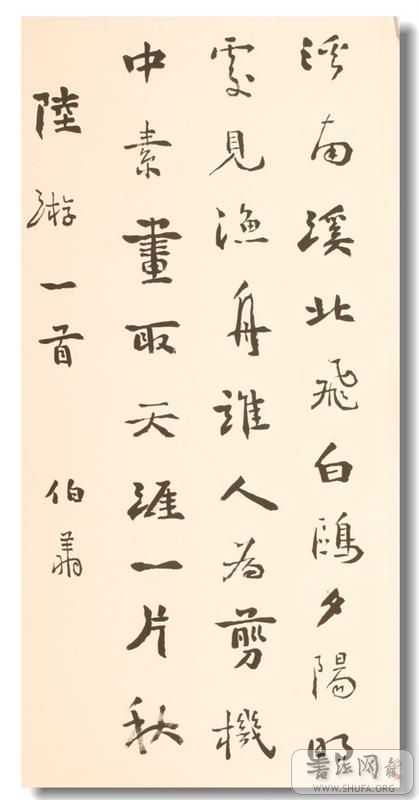 溪南溪北飛白鷗夕陽明
處見漁舟誰人為剪機
中素畫取天涯一片秋
陸游一首
伯
書法网
WWW.SHUFA.ORG